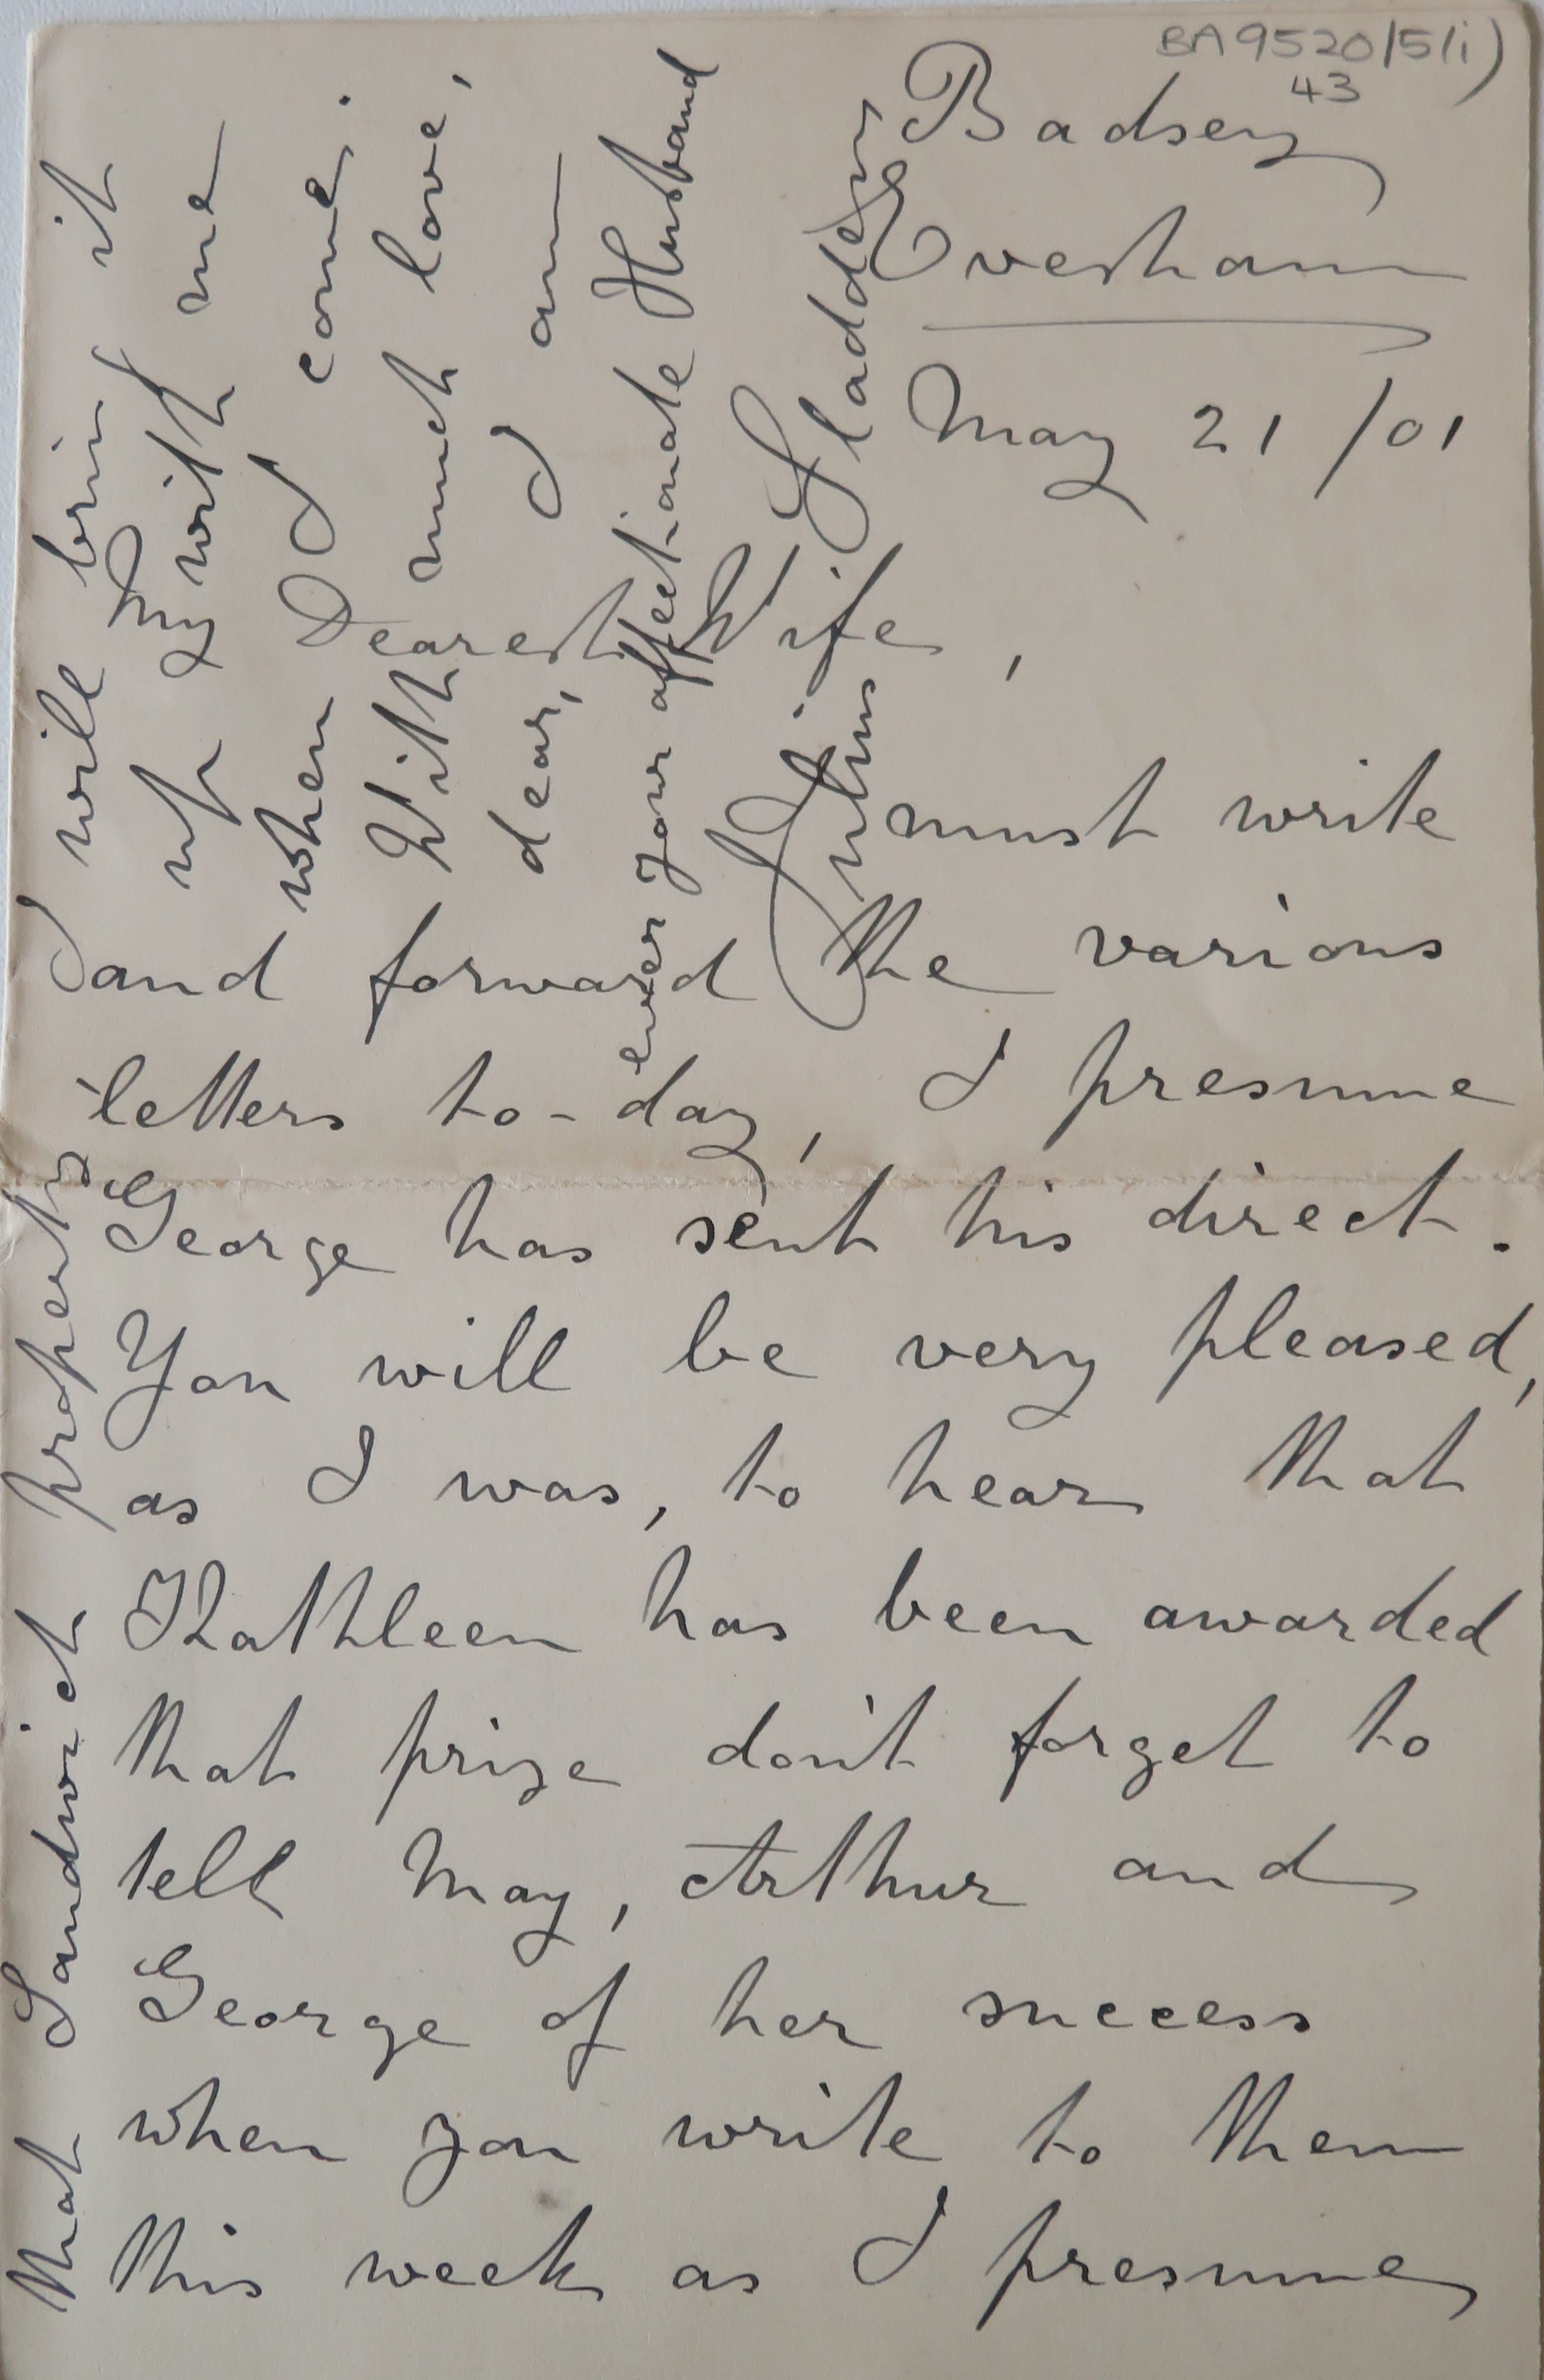 BA 9520/5(i)
43
Badsey
Evesham
May 21/01
My Dearest Wife,
I must write
and forward the various
letters to-day, I presume
George has sent his direct.
You will be very pleased,
as I was, to hear that
Kathleen has been awarded
that prize don't forget to
tell May, Arthur and
George of her success
when you write to them
this week as I presume
that Sandwich property I will bring it
up with me
when I come.
With much love,
dear, I am
ever your affectionate Husband
Julius Sladden